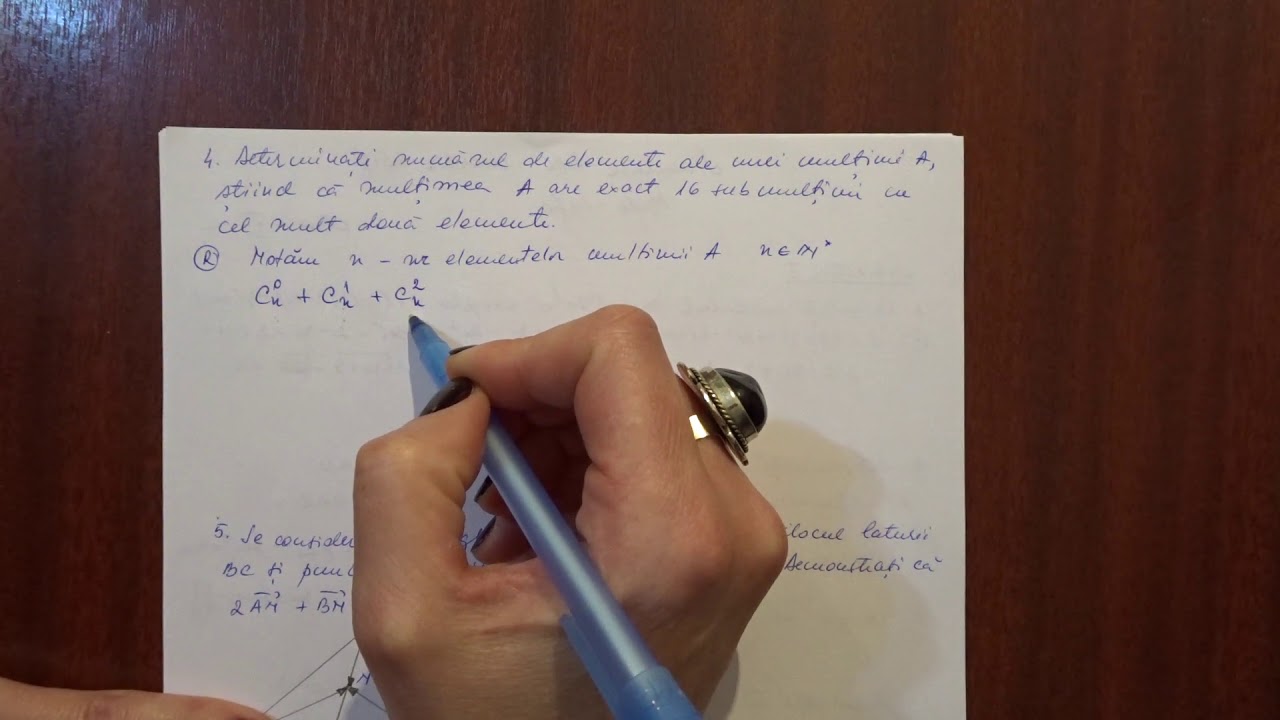 4. Determinați numărul de elemente ale unei mulțimi A,
știind că mulțimea A are exact 16 submulțimi cu
cel mult două elemente.
R Notăm n - nr elementelor mulțimii A n ∈ ℕ*
C_n^0 + C_n^1 + C_n^2
5. Se consideră mijlocul laturii
BC și Demonstrați că
2AM + BM
M